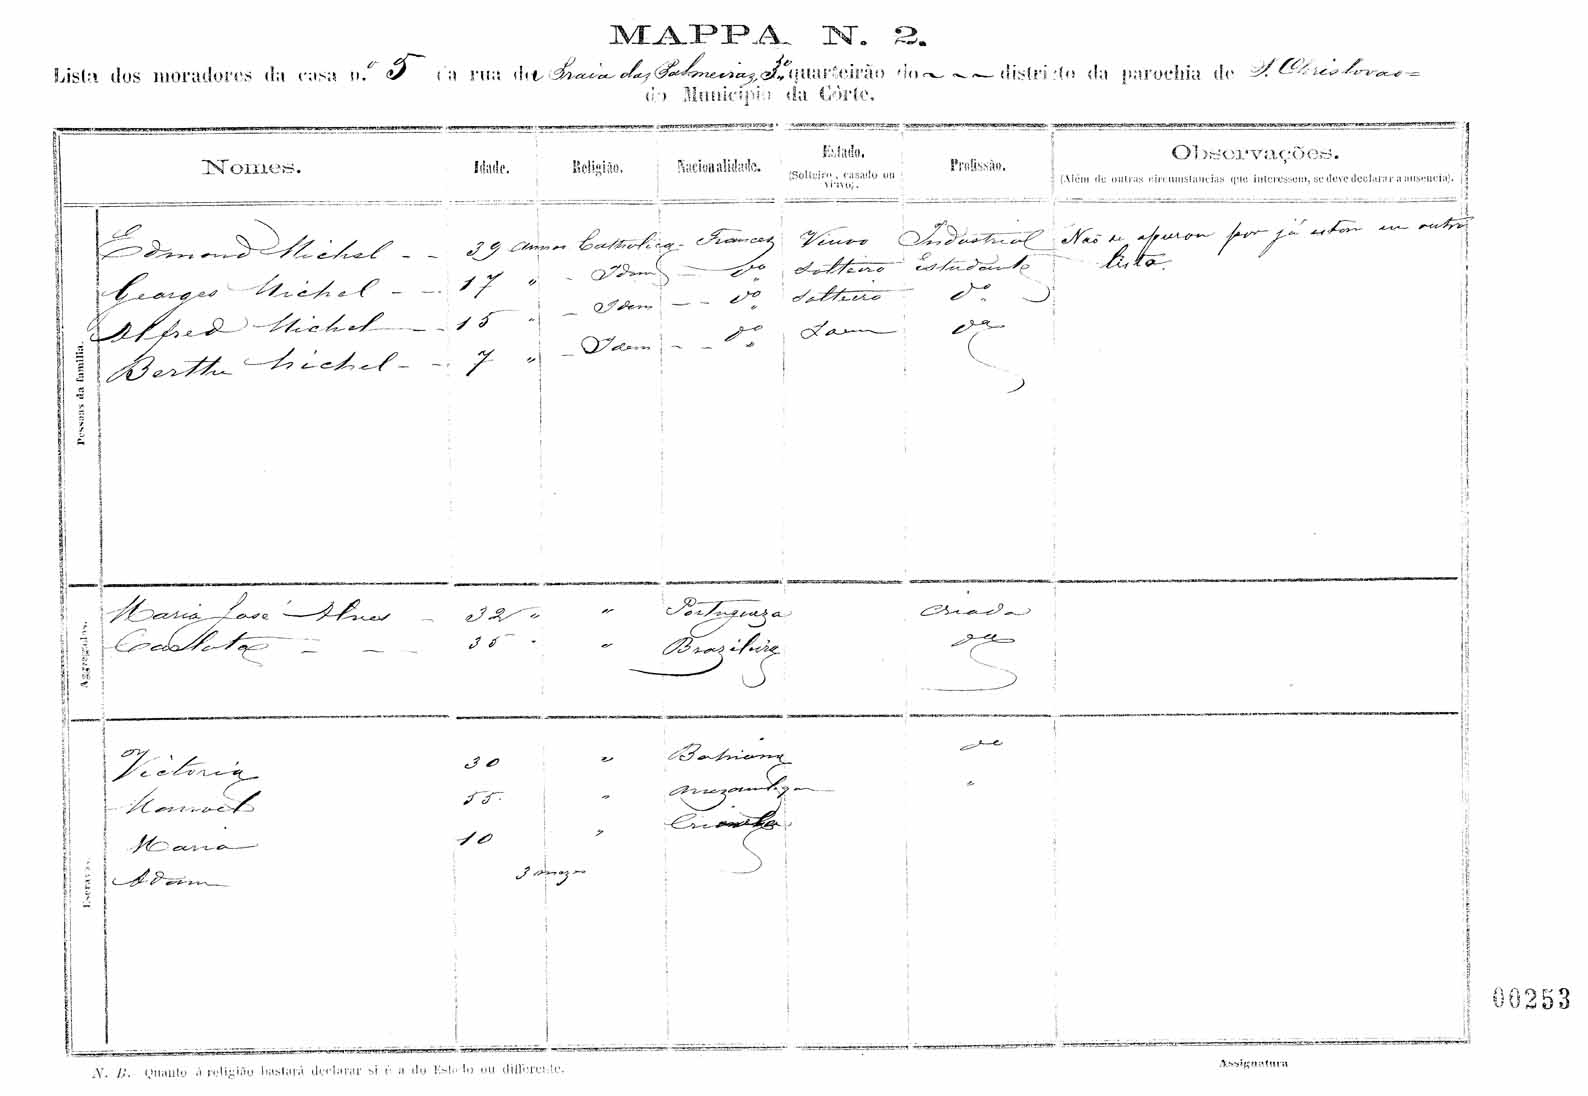 MAPPA N. 2.
Lista dos moradores da casa n.º 5 da rua da Praia das Palmeiras, 3º quarteirão do — — — districto da parochia de S. Christovao =
do Municipio da Côrte.
Nomes. Idade. Religião. Nacionalidade. Estado. (Solteiro, casado ou viuvo). Profissão. Observações. (Além de outras circumstancias que interessem, se deve declarar a ausencia).
Pessoas da familia.
Edmond Michel - - 39 annos Catholica - Francez Viuvo Industrial Não se apurou por já estar em outra
lista.
Georges Michel - - 17 " - Idem - dº Solteiro Estudante
Alfred Michel - - 15 " - Idem - - dº Solteiro dº
Berthe Michel - - 7 " - Idem - - dº Idem dª
Aggregados.
Maria José Alves - 32 " " Portugueza criada
Carlota - - - 35 " " Brazileira dª
Escravos.
Victoria 30 " Bahiana dª
Manoel 55 " Mozambique "
Maria 10 " Crioula
Adam 3 mezes
00253
N. B. Quanto á religião bastará declarar si é a do Estado ou differente.
Assignatura